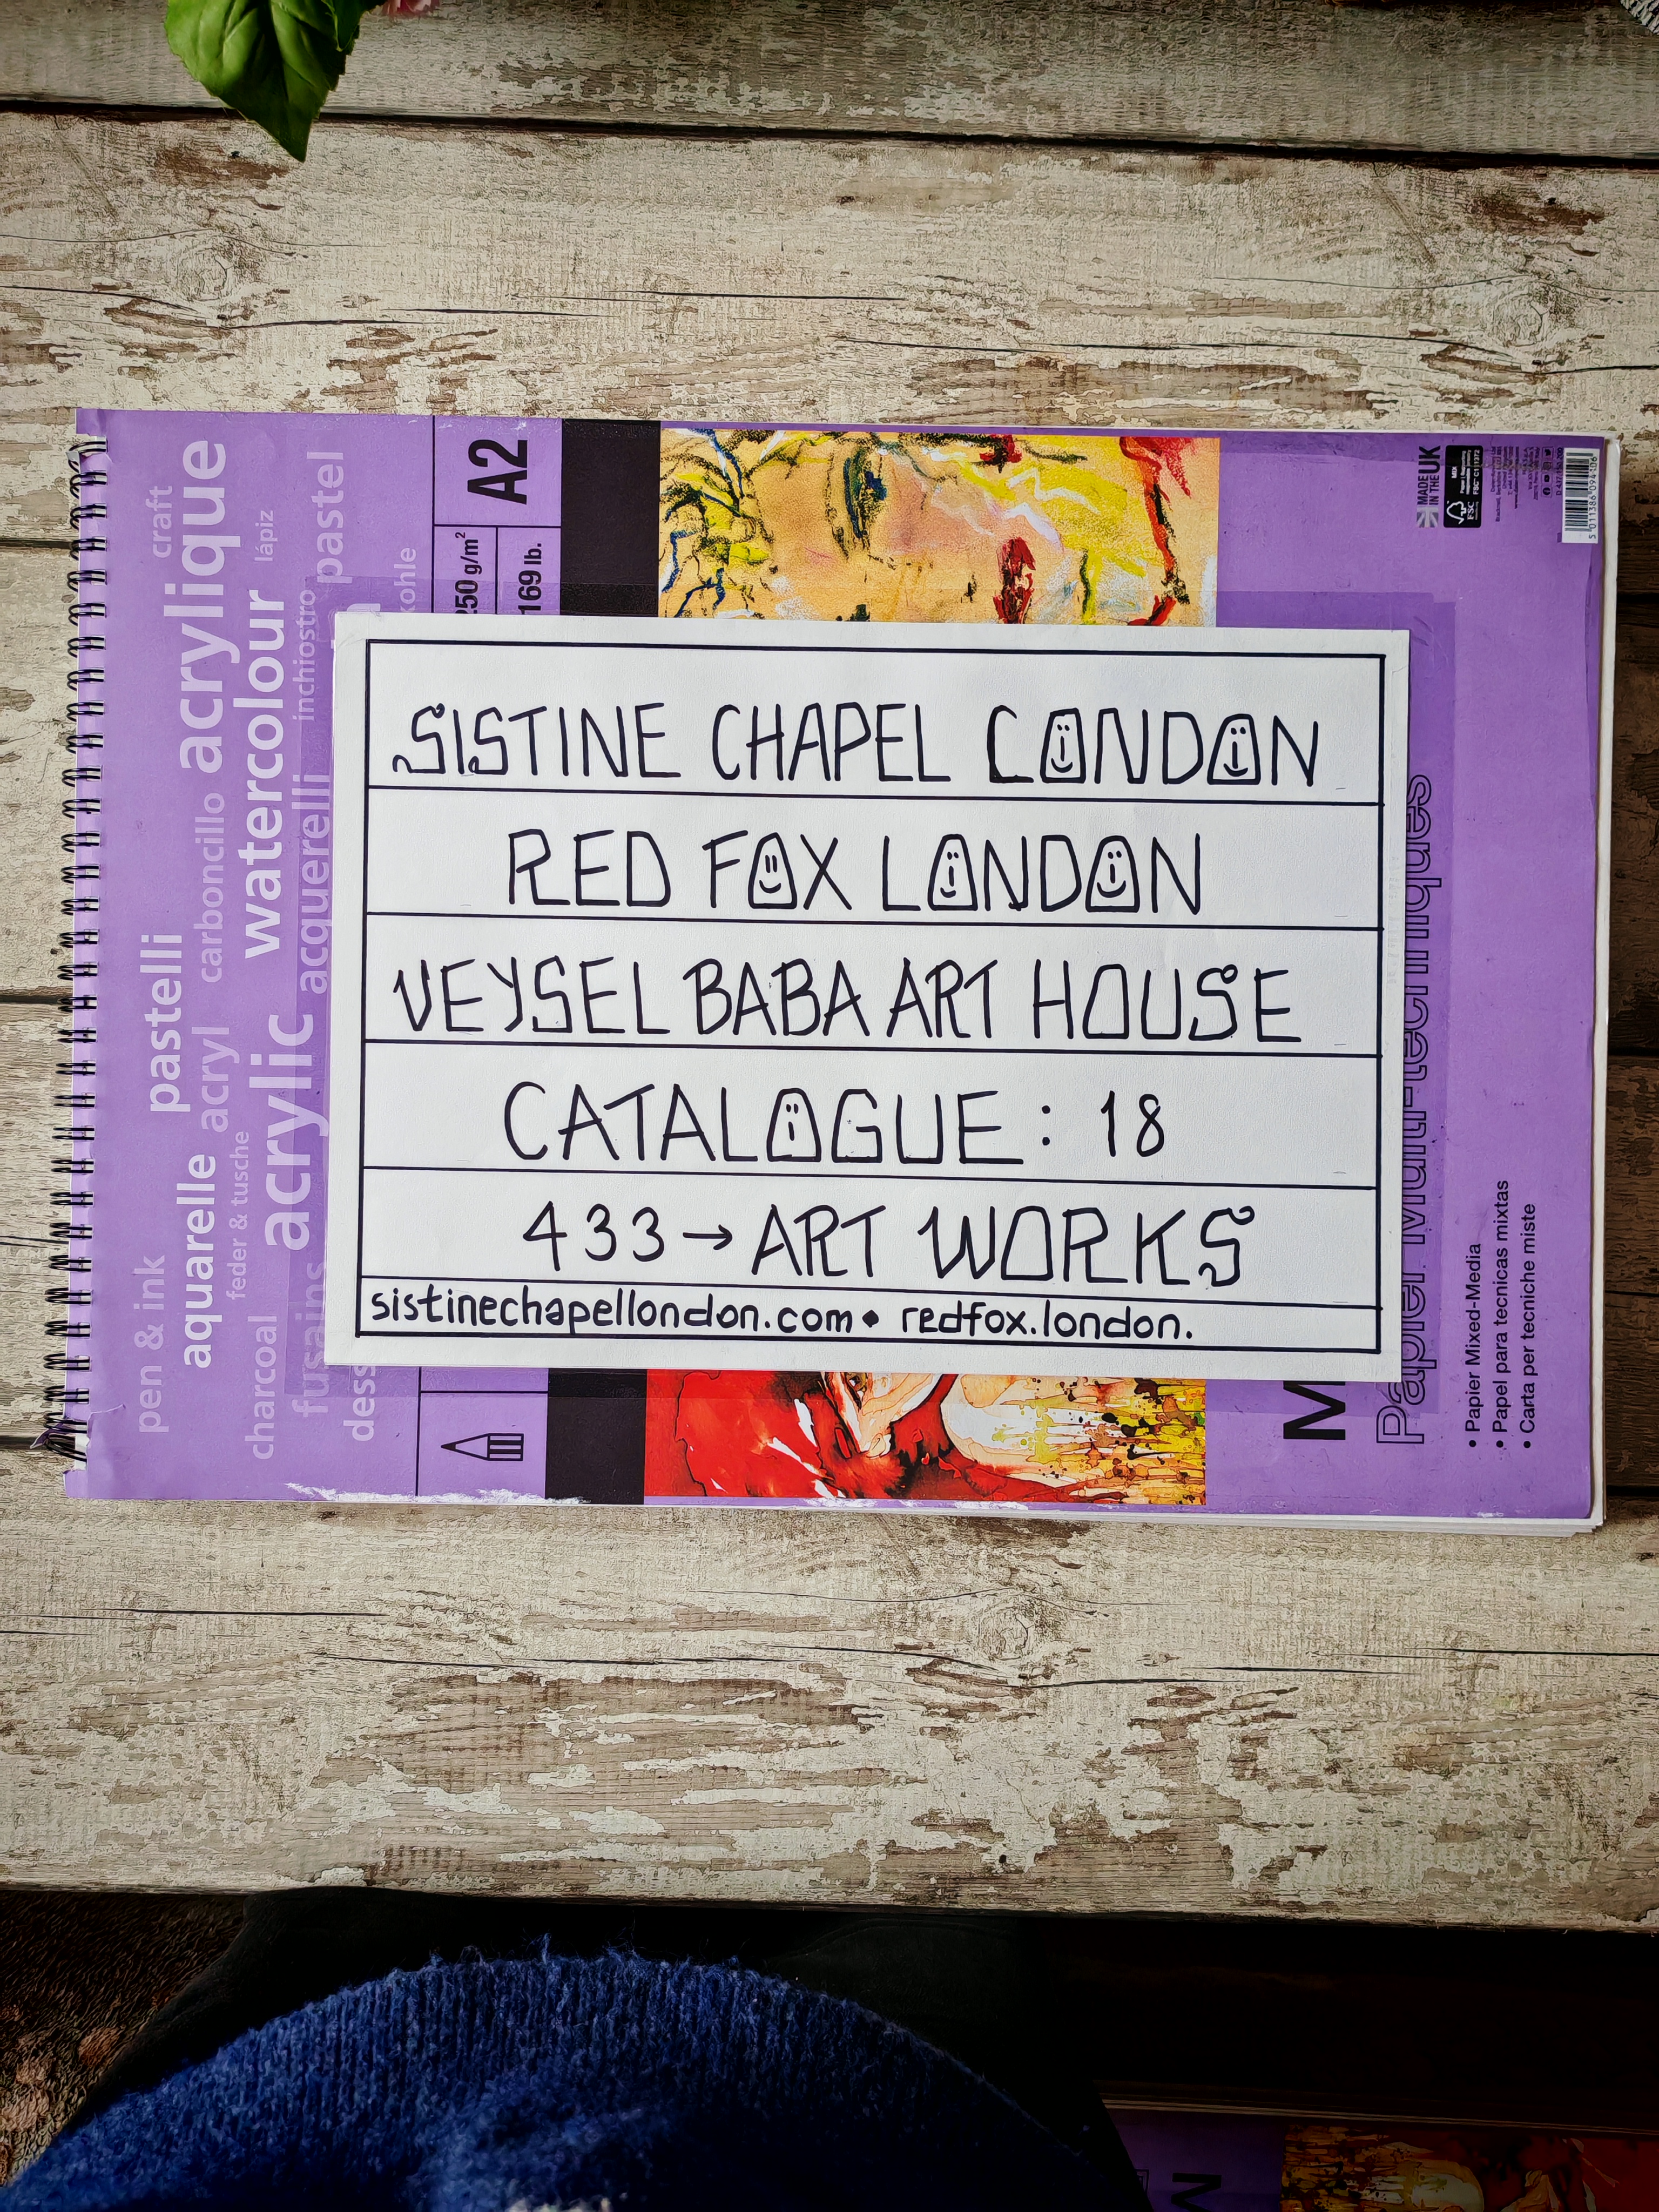 SISTINE CHAPEL LONDON
RED FOX LONDON
VEYSEL BABA ART HOUSE
CATALOGUE : 18
433→ART WORKS
sistinechapellondon.com • redfox.london.
craft
acrylique
lápiz
pastel
watercolour
inchiostro
kohle
carboncillo
acquerelli
pastelli
acryl
acrylic
aquarelle
feder & tusche
pen & ink
charcoal
fusains
dess
A2
250 g/m²
169 lb.
MADE IN THE UK
FSC
MIX
FSC® C111372
5 011386 094106
M
Papier Multi-techniques
• Papier Mixed-Media
• Papel para tecnicas mixtas
• Carta per tecniche miste
M